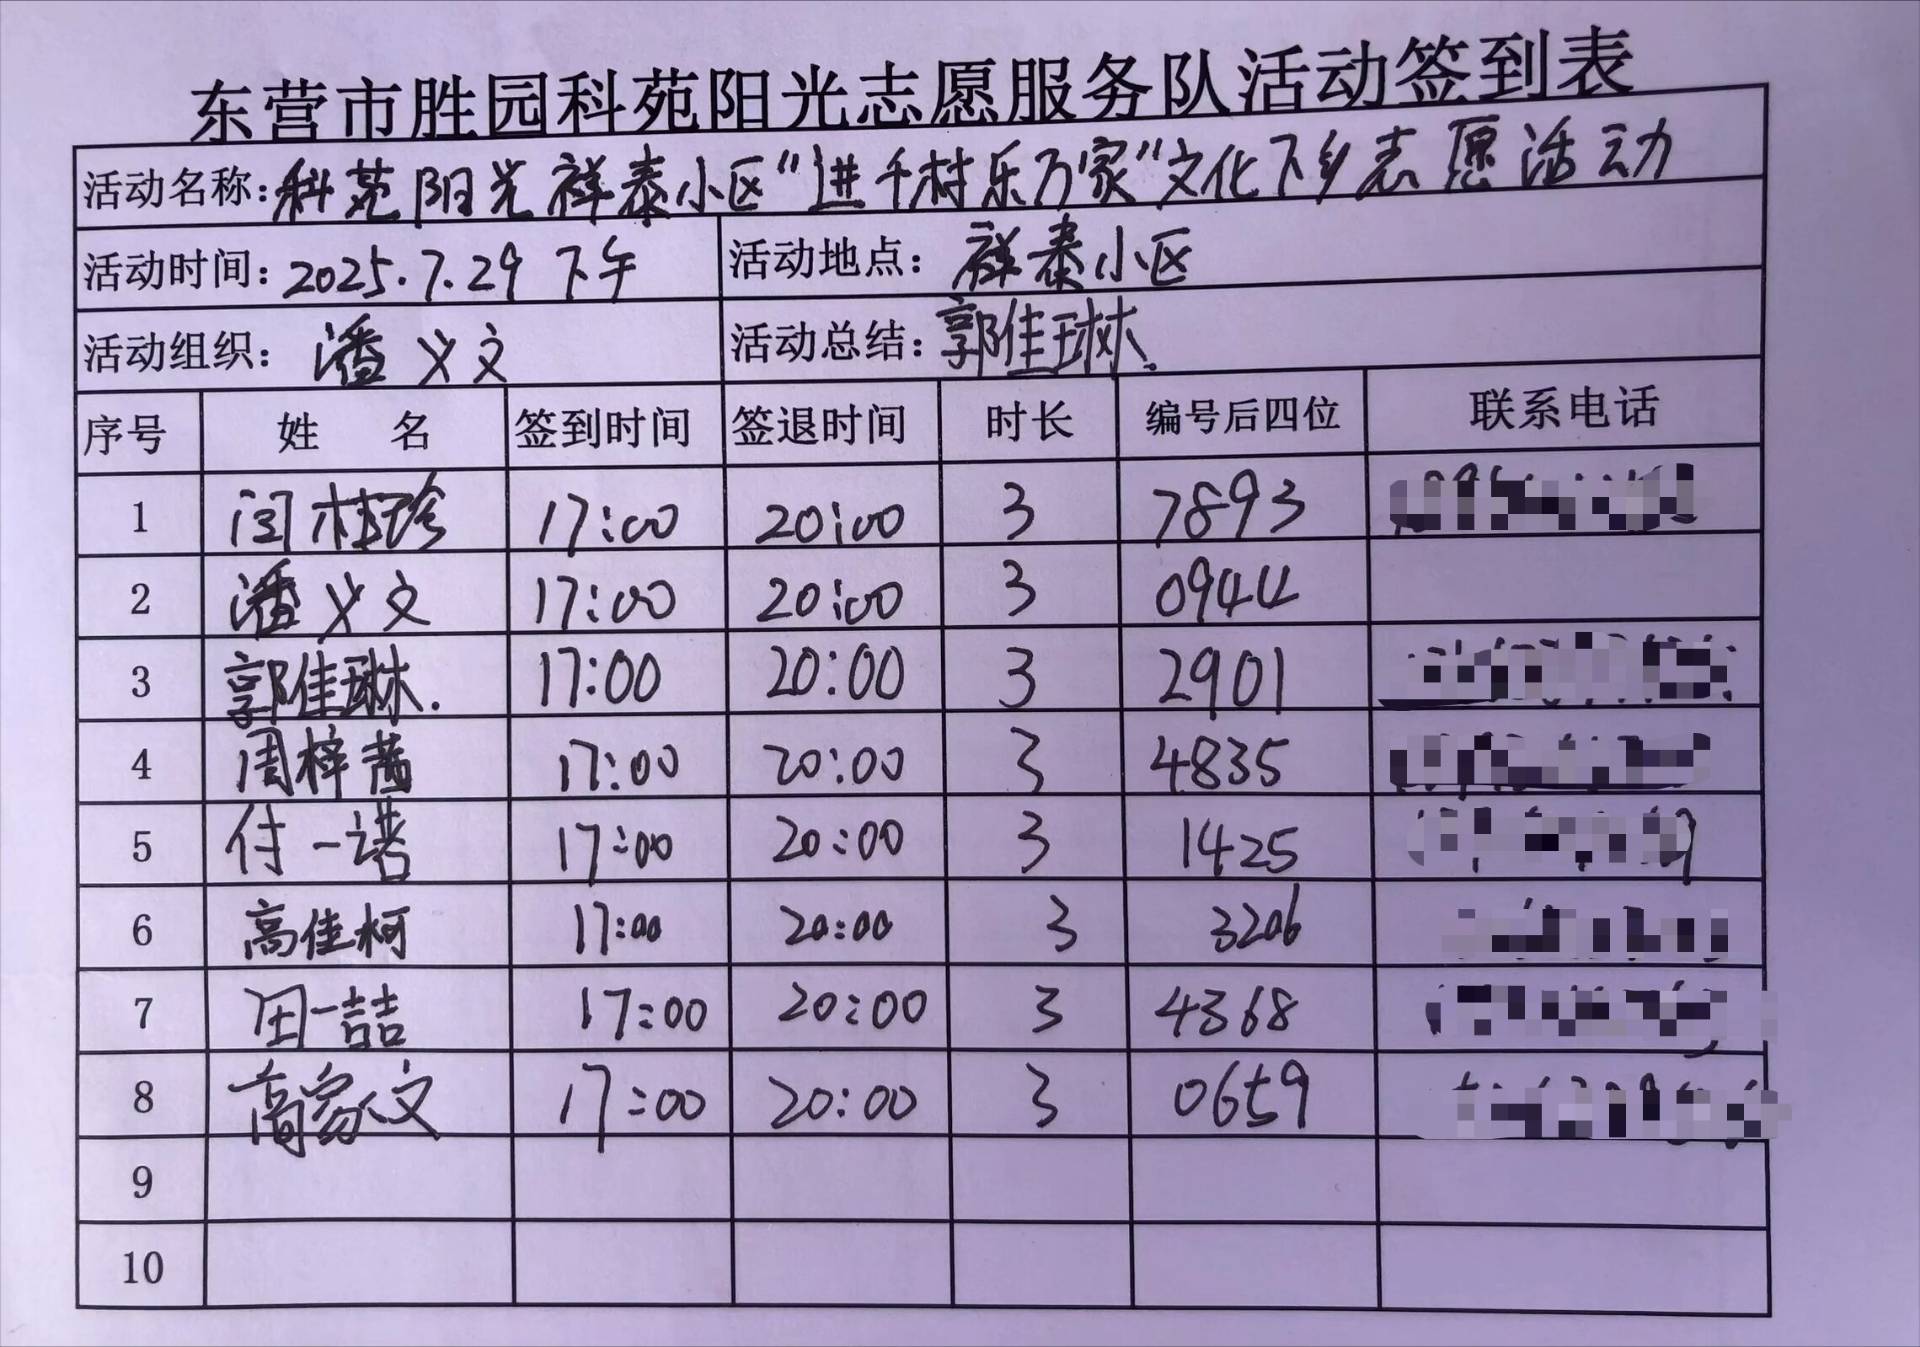 东营市胜园科苑阳光志愿服务队活动签到表
活动名称:科苑阳光祥泰小区“进千村乐万家”文化下乡志愿活动
活动时间:2025.7.29 下午 活动地点:祥泰小区
活动组织:潘义文 活动总结:郭佳琳.
序号 姓 名 签到时间 签退时间 时长 编号后四位 联系电话
1 闫桂珍 17:00 20:00 3 7893
2 潘义文 17:00 20:00 3 0944
3 郭佳琳. 17:00 20:00 3 2901
4 周梓茜 17:00 20:00 3 4835
5 付一诺 17:00 20:00 3 1425
6 高佳柯 17:00 20:00 3 3206
7 田一喆 17:00 20:00 3 4368
8 高家文 17:00 20:00 3 0659
9
10